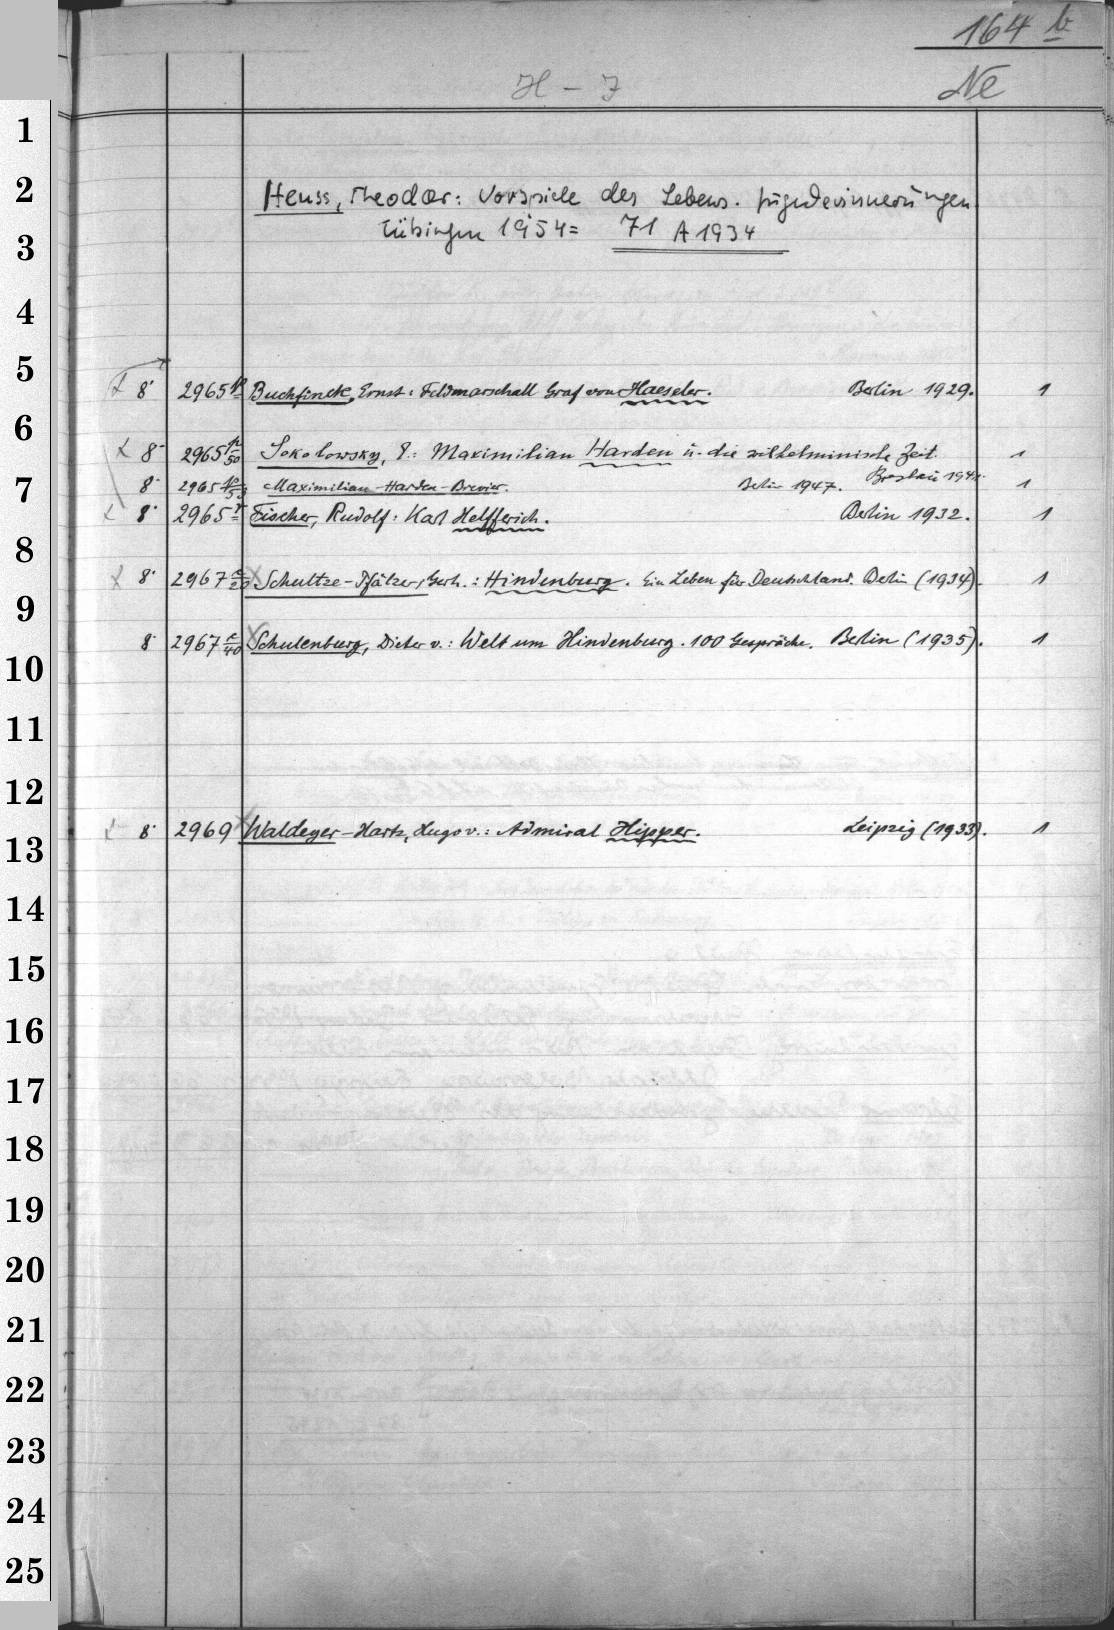 164 b
H – J
Ne
Heuss, Theodor: Vorspiele des Lebens. Jugenderinnerungen
Tübingen 1954 = 71 A 1934
8° 2965 p Buchfinck, Ernst: Feldmarschall Graf von Haeseler. Berlin 1929. 1
8° 2965 p/50 Sokolowsky, P.: Maximilian Harden u. die wilhelminische Zeit. Breslau 1941. 1
8° 2965 p/53 Maximilian-Harden-Brevier. Berlin 1947. 1
8° 2965 r Fischer, Rudolf: Karl Helfferich. Berlin 1932. 1
8° 2967 c/20 Schultze-Pfälzer, Gerh.: Hindenburg. Ein Leben für Deutschland. Berlin (1934). 1
8° 2967 c/40 Schulenburg, Dieter v.: Welt um Hindenburg. 100 Gespräche. Berlin (1935). 1
8° 2969 Waldeyer-Hartz, Hugo v.: Admiral Hipper. Leipzig (1933). 1
1
2
3
4
5
6
7
8
9
10
11
12
13
14
15
16
17
18
19
20
21
22
23
24
25